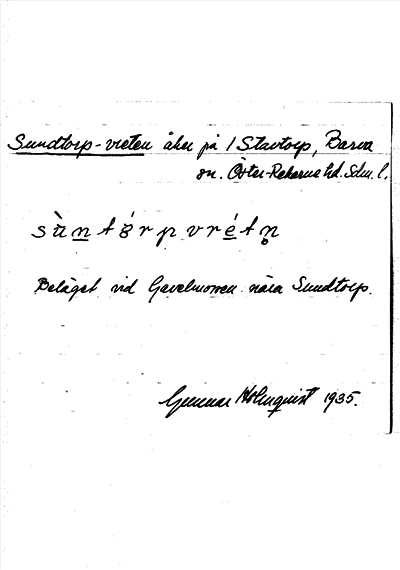 Sundtorp-vreten åker på / Stavtorp, Barva
sn. Öster-Rekarne hd. Sdm. l.
sùntórpvrétn̥
Beläget vid Gavelmossen nära Sundtorp.
Gunnar Holmquist 1935.